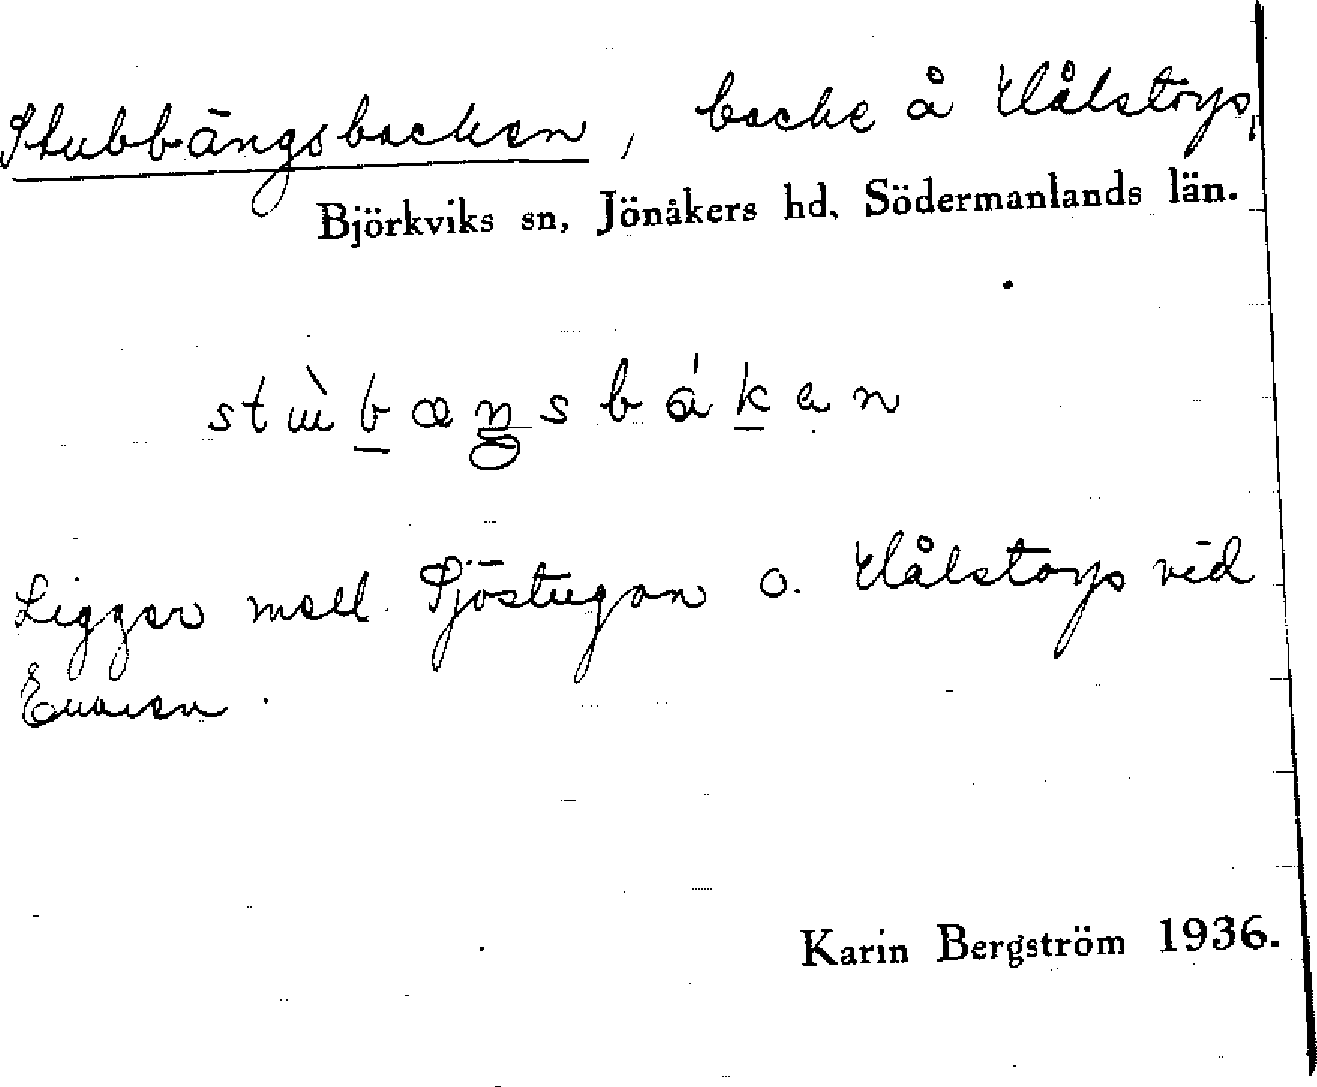 Stubbängsbacken, backe å Hålstorp,
Björkviks sn, Jönåkers hd, Södermanlands län.
stùbæŋsbákan
Ligger mell. Sjöstugan o. Hålstorp vid
Enaren.
Karin Bergström 1936.